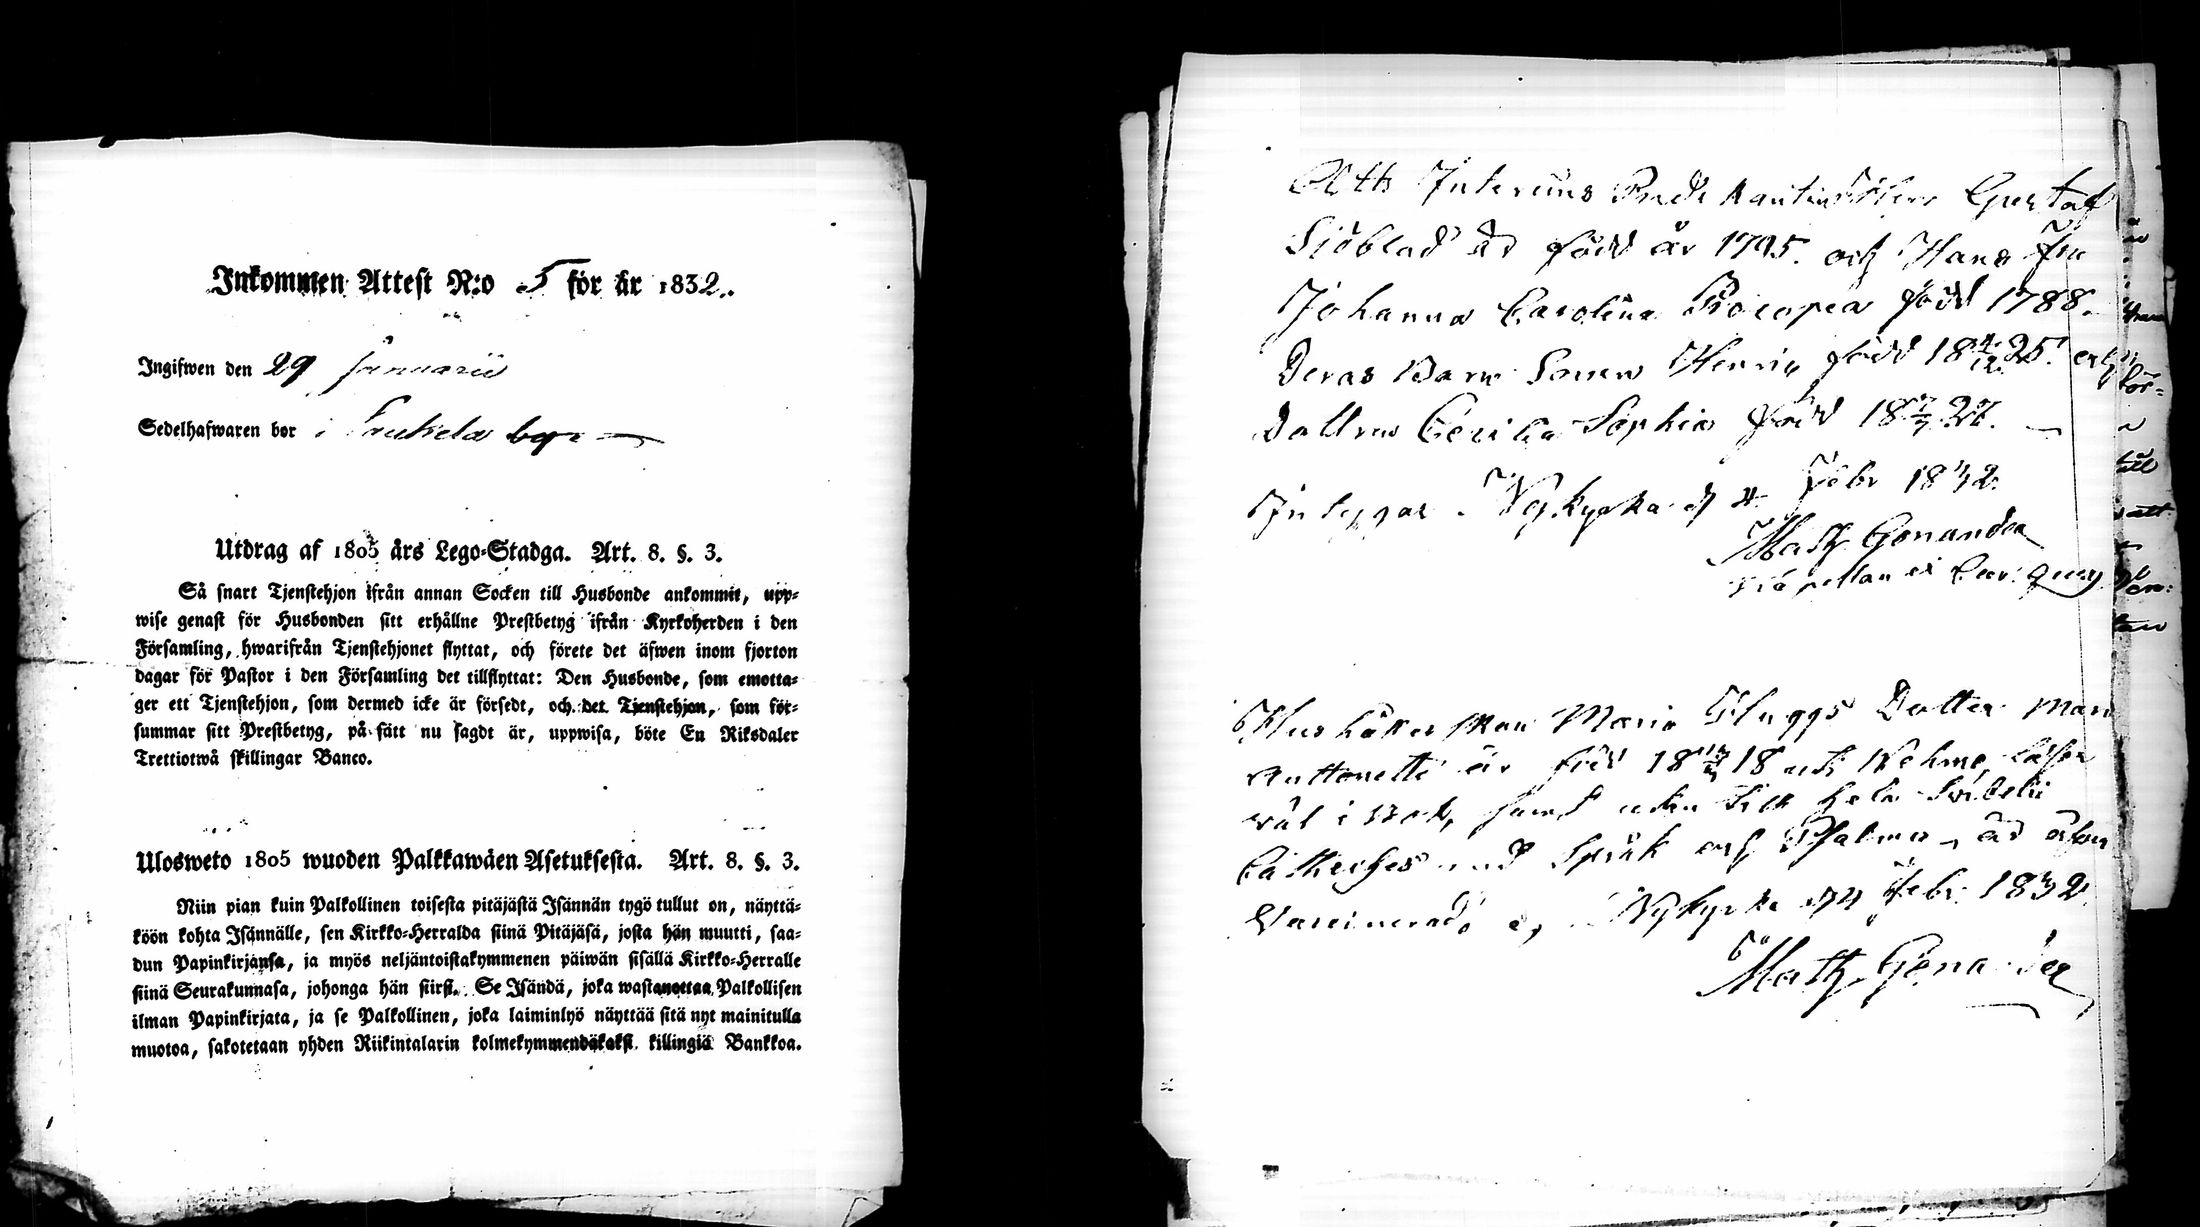 Inkommen Attest N:o 5 för år 1832.
Ingifwen den 29 Januarii
Sedelhafwaren bor i Taukela by
Utdrag af 1805 års Lego-Stadga. Art. 8. §. 3.
Så snart Tjenstehjon ifrån annan Socken till Husbonde ankommit, upp-
wise genast för Husbonden sitt erhållne Prestbetyg ifrån Kyrkoherden i den
Församling, hwarifrån Tjenstehjonet flyttat, och förete det äfwen inom fjorton
dagar för Pastor i den Församling det tillflyttat: Den Husbonde, som emotta-
ger ett Tjenstehjon, som dermed icke är försedt, och det Tjenstehjon, som för-
summar sitt Prestbetyg, på sätt nu sagdt är, uppwisa, böte En Riksdaler
Trettiotwå skillingar Banco.
Ulosweto 1805 wuoden Palkkawäen Asetuksesta. Art. 8. §. 3.
Niin pian kuin Palkollinen toisesta pitäjästä Isännän tygö tullut on, näyttä-
köön kohta Isännälle, sen Kirkko-Herralda siinä Pitäjäsä, josta hän muutti, saa-
dun Papinkirjansa, ja myös neljäntoistakymmenen päiwän sisällä Kirkko-Herralle
siinä Seurakunnasa, johonga hän siirsi. Se Isändä, joka wastanottaa Palkollisen
ilman Papinkirjata, ja se Palkollinen, joka laiminlyö näyttää sitä nyt mainitulla
muotoa, sakotetaan yhden Riikintalarin kolmekymmendäkaksi killingiä Bankkoa.
Att Interims Gustaf
Sjöblad är född år 1795. och Hans Fru
Johanna Carolina Procopea född 1788.
Deras Barn Sonen Henric född 18 4/12 25. och
Dottren Cecilia Sophia född 18 27.
Intygar Nykyrka d 4 Febr 1832.
Math Gonander
Maria Pluggs Dotter Mari
Antonetta är född 18 18 uti läser
väl i Bok, samt utan hela
Catheches med Språk och Psalmer, är äfven
Vaccinerad Nykyrka d 4 Febr. 1832.
Math. Gonander